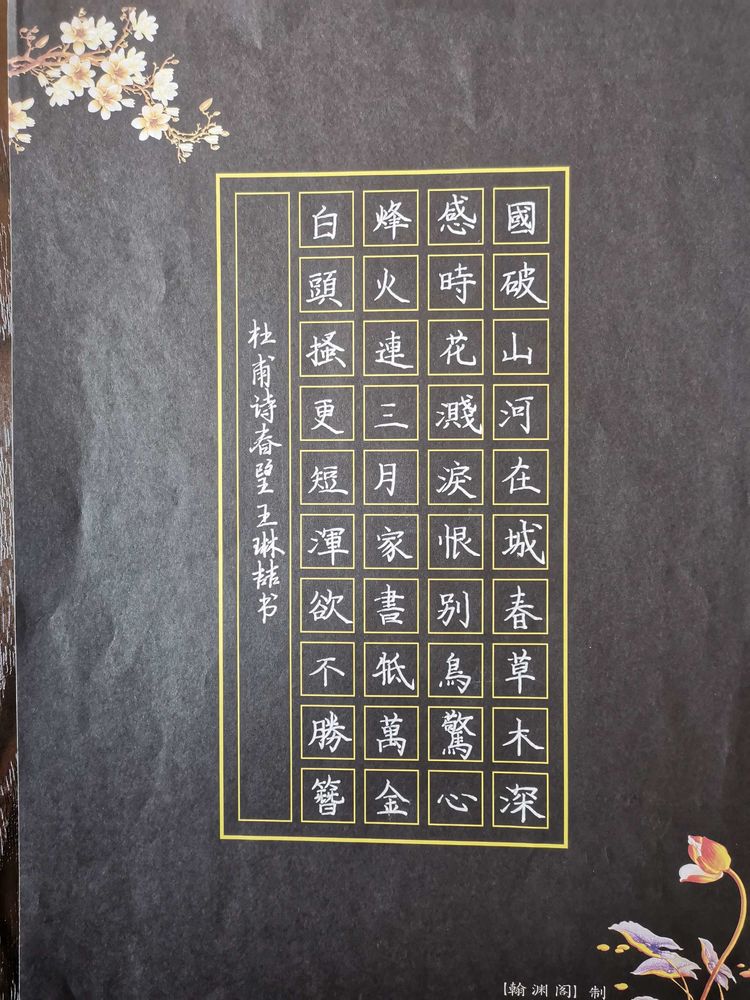 國破山河在城春草木深
感時花濺淚恨別鳥驚心
烽火連三月家書牴萬金
白頭搔更短渾欲不勝簪
杜甫诗春望王琳桔书
【翰渊阁】制